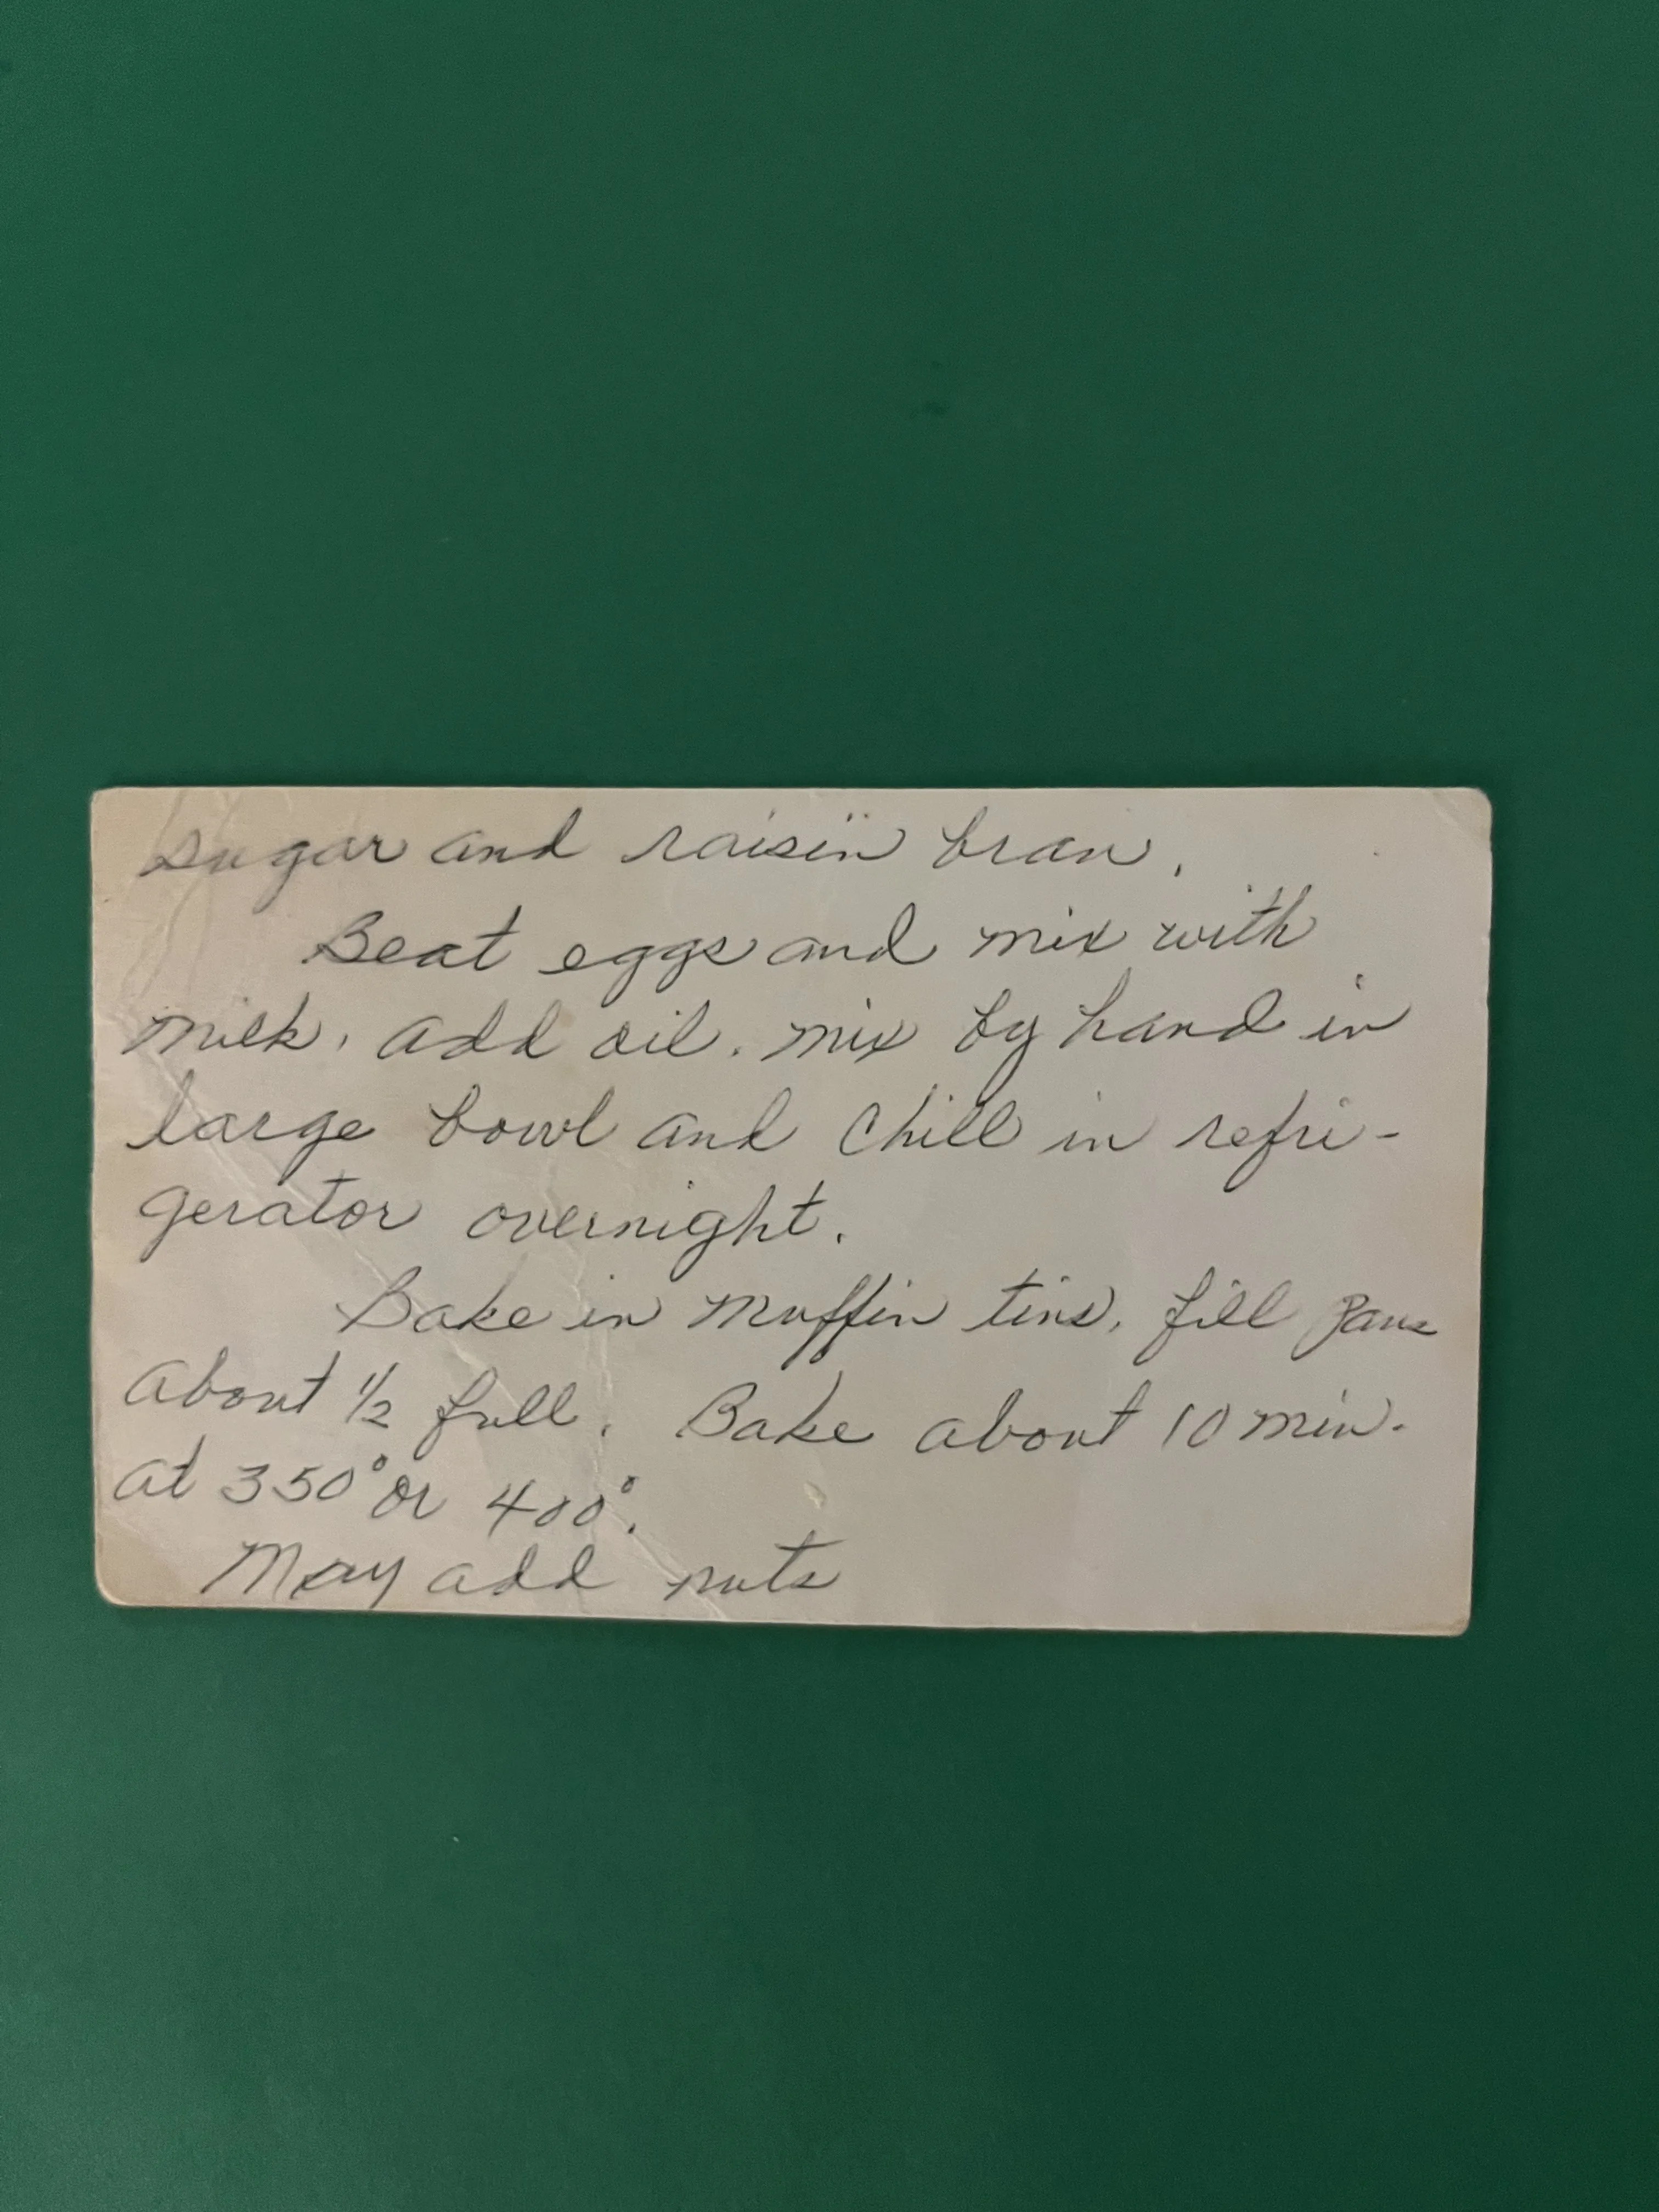 sugar and raisin bran.
Beat eggs and mix with
milk. add oil. mix by hand in
large bowl and chill in refri-
gerator overnight.
Bake in muffin tins. fill pans
about 1/2 full. Bake about 10 min.
at 350° or 400°.
May add nuts